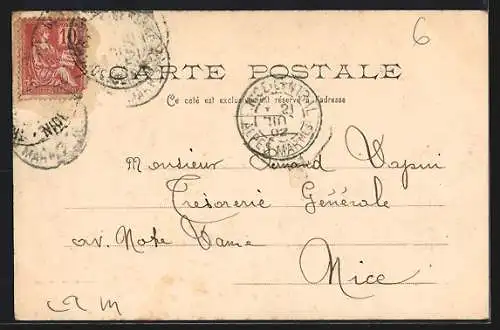 10
6
CARTE POSTALE
Ce côté est exclusivement réservé à l'adresse
21
02
ALPES-MARMES
Monsieur
Trésorerie Générale
av. Notre Dame
Nice